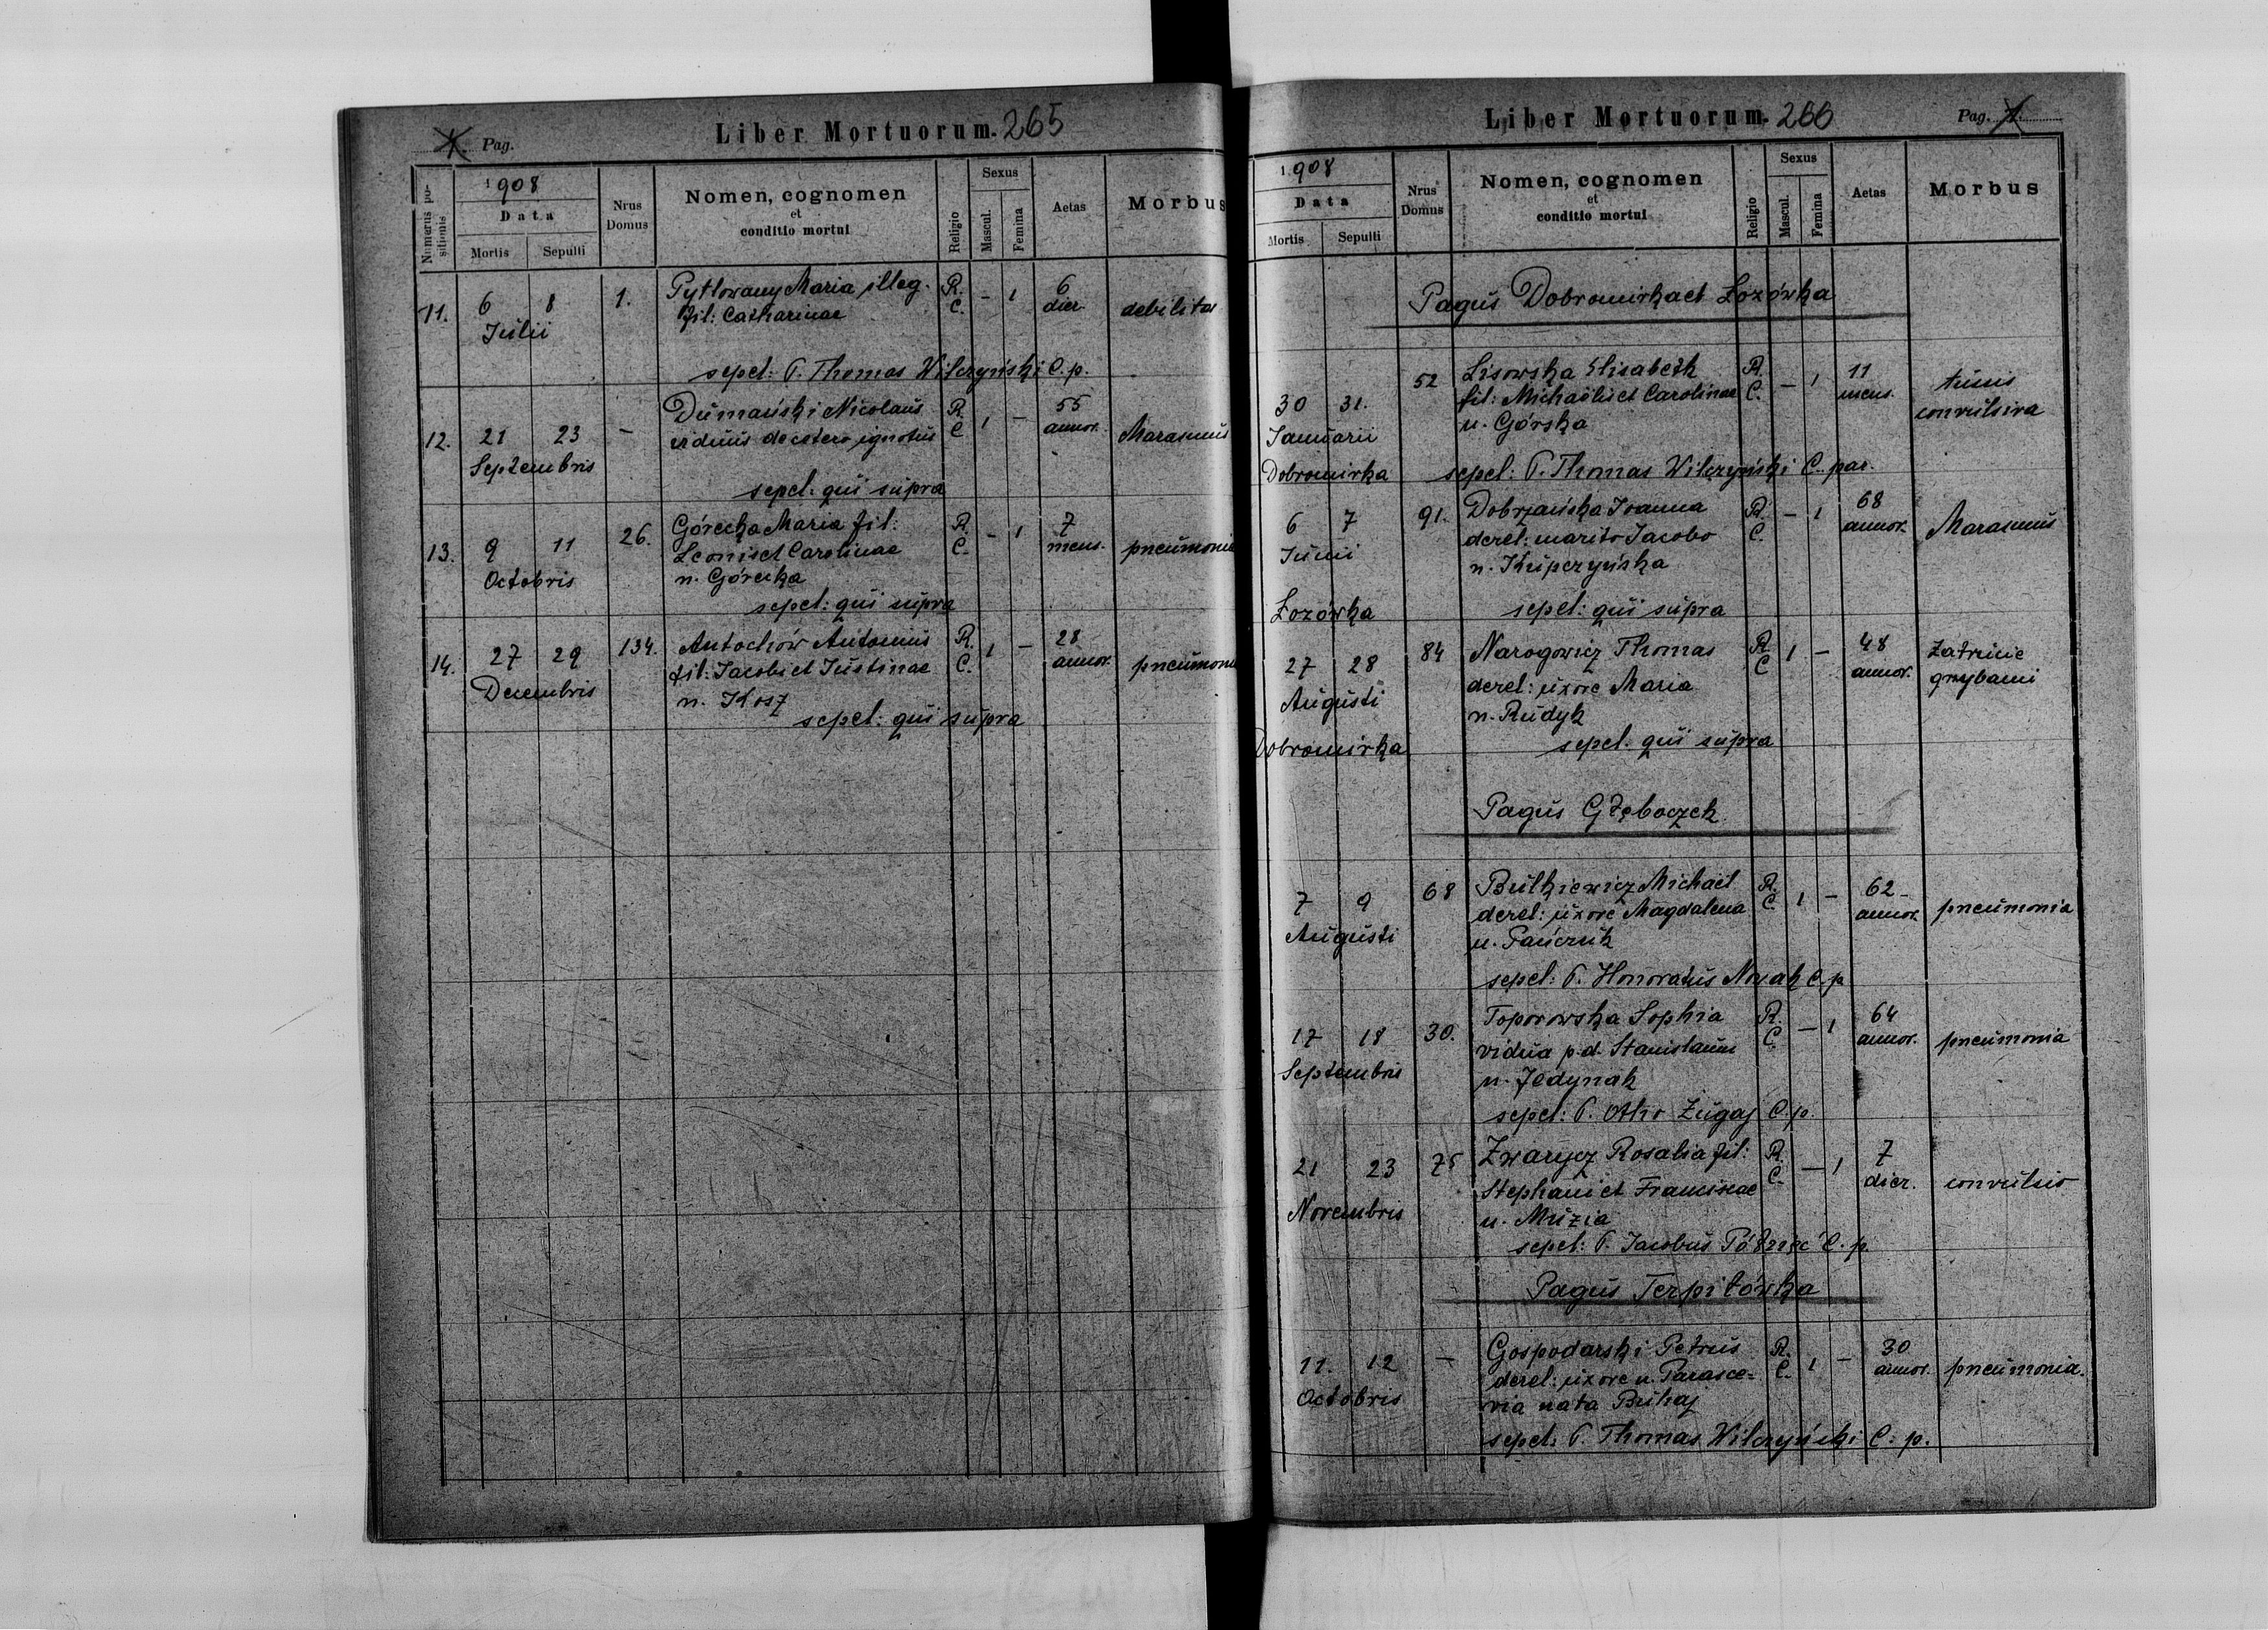 4. Pag.
Liber Mortuorum. 265
Numerus positionis
1908
Data
Mortis
Sepulti
Nrus Domus
Nomen, cognomen
et
conditio mortui
Religio
Sexus
Mascul.
Femina
Aetas
Morbus
11. 6 8 1. Pytlowany Maria illeg. R. - 1 6
Julii fil: Catharinae C. dier debilitas
sepel: P. Thomas Wilczyński C. p.
Dumański Nicolaus R. 1 - 55
12. 21 23 - viduus de cetero ignotus C annor. Marasmus
Septembris
sepel: qui supra
Górecka Maria fil: R. - 1 7
13. 9 11 26. Leonis et Carolinae C. mens. pneumonia
Octobris n. Górecka
sepel: qui supra
14. 27 29 134. Antochów Antonius R. 1 - 28
Decembris fil: Jacobi et Justinae C. annor. pneumonia
n. Kosz
sepel: qui supra
Liber Mortuorum. 266
Pag.
1908
Data
Mortis
Sepulti
Nrus Domus
Nomen, cognomen
et
conditio mortui
Religio
Sexus
Mascul.
Femina
Aetas
Morbus
Pagus Dobromirka et Łozówka
52 Lisowska Elisabeth R. - 1 11 tussis
30 31. fil: Michaëlis et Carolinae C. mens. convulsiva
Januarii n. Górska
Dobromirka sepel: P. Thomas Wilczyński C. par.
6 7 91. Dobrzańska Joanna R. - 1 68
Junii derel: marito Jacobo C. annor. Marasmus
n. Kupczyńska
Łozówka sepel: qui supra
27 28 84 Narogowicz Thomas R. 1 - 48 zatrucie
Augusti derel: uxore Maria C annor. grzybami
n. Rudyk
Dobromirka sepel. qui supra
Pagus Głęboczek
7 9 68 Butkiewicz Michaël R. 1 - 62
Augusti derel: uxore Magdalena C. annor. pneumonia
n. Pańczuk
sepel: P. Honoratus Nowak C. p
17 18 30. Toporowska Sophia R. - 1 64
Septembris vidua p. d. Stanislaum C. annor. pneumonia
n. Jedynak
sepel: P. Otho Zugaj C. p
21 23 75 Zwarycz Rosalia fil: R. - 1 7
Novembris Stephani et Franciscae C. dier. convulsio
n. Muzia
sepel: P. Jacobus Półzięć C. p.
Pagus Terpiłówka
11. 12 - Gospodarski Petrus R. 1 - 30
Octobris derel: uxore n. Parasce= C. annor. pneumonia.
via nata Buhaj
sepel: P. Thomas Wilczyński C. p.